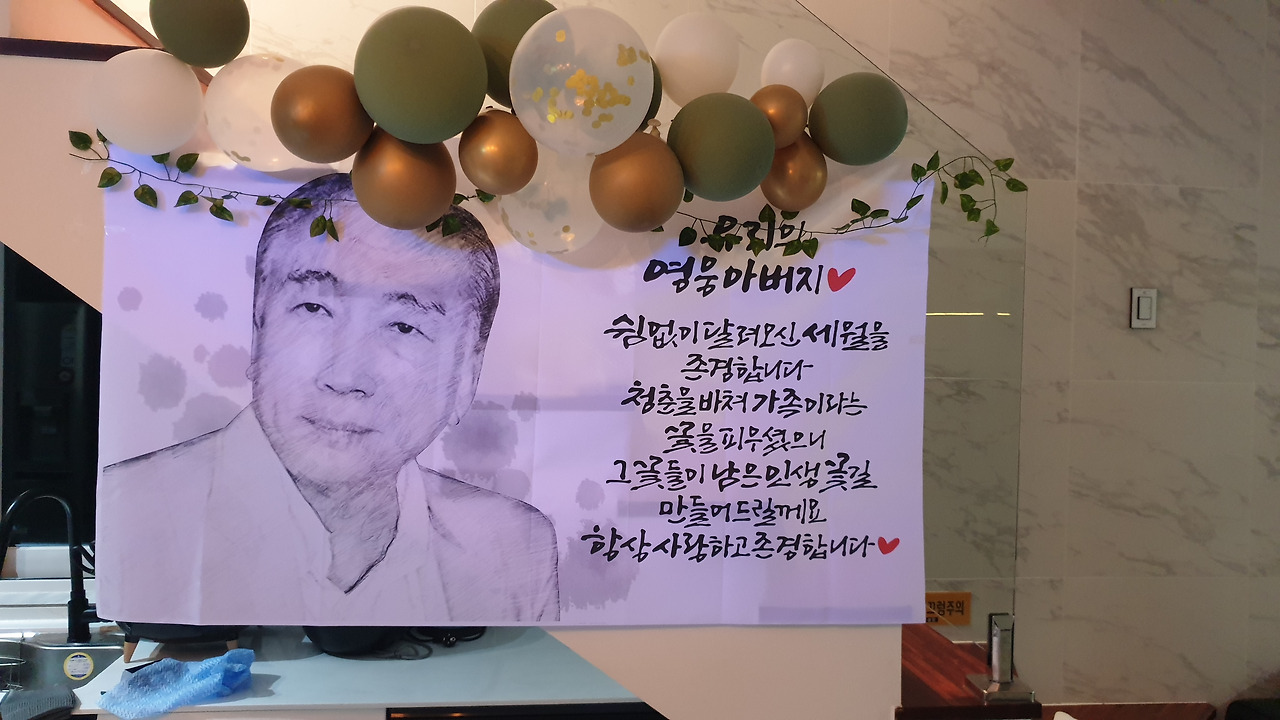 우리의
영웅아버지
쉼없이 달려오신 세월을
존경합니다
청춘을 바쳐 가족이라는
꽃을 피우셨으니
그 꽃들이 남은 인생 꽃길
만들어드릴께요
항상 사랑하고 존경합니다
끄럼주의